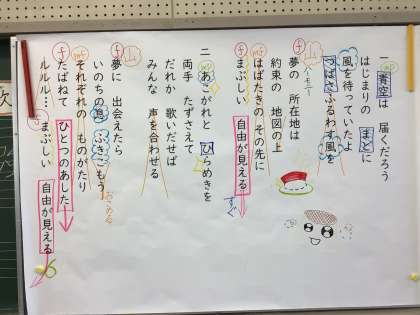 一 青空は 届くだろう
はじまりの まどに
風を待っていたよ
つばさふるわす風を
ハーモニー
夢の 所在地は
約束の 地図の上
はばたきの その先に
まぶしい 自由が見える
すぐ
二 あこがれと ひらめきを
両手 たずさえて
だれか 歌いだせば
みんな 声を合わせる
夢に 出会えたら
いのちの息 ふきこもう
それぞれの ものがたり
たばねて ひとつのあしたへ
ルルル… まぶしい 自由が見える